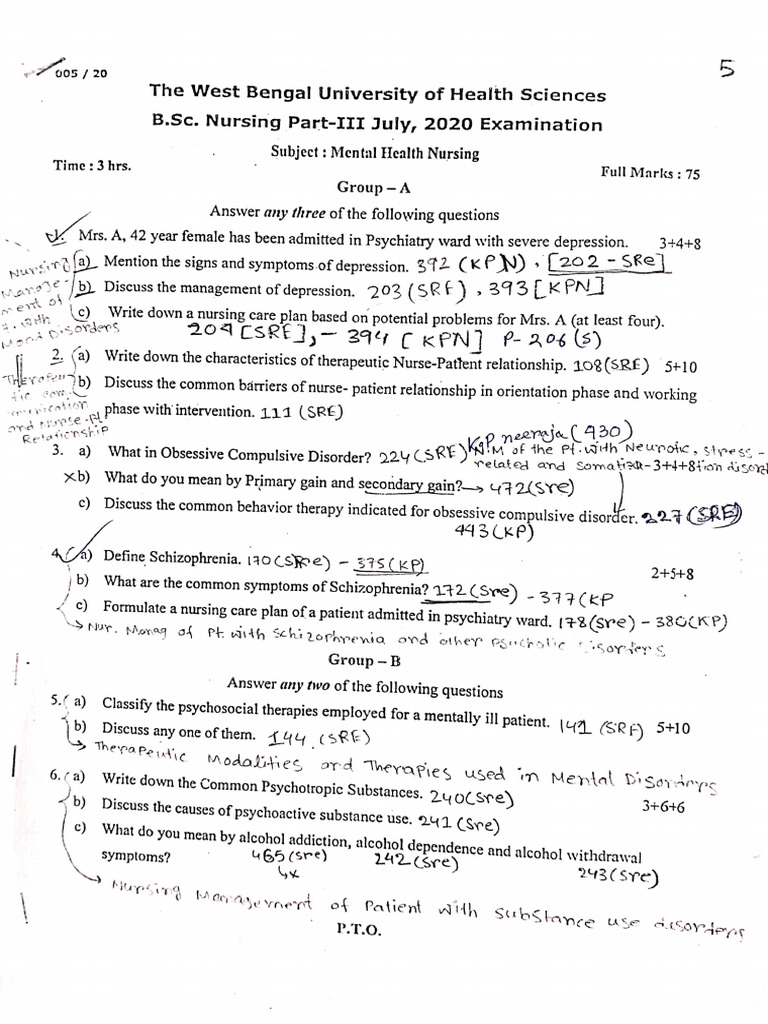 005 / 20
5
The West Bengal University of Health Sciences
B.Sc. Nursing Part-III July, 2020 Examination
Subject : Mental Health Nursing
Time : 3 hrs.
Full Marks : 75
Group – A
Answer any three of the following questions
1. Mrs. A, 42 year female has been admitted in Psychiatry ward with severe depression. 3+4+8
a) Mention the signs and symptoms of depression. 392 (KPN), [202 - SRe]
b) Discuss the management of depression. 203 (SRE), 393 [KPN]
c) Write down a nursing care plan based on potential problems for Mrs. A (at least four).
204 [SRE], - 394 [KPN] P- 206 (S)
Nursing
Manage-
ment of
Pt. with
Mood Disorders
2. a) Write down the characteristics of therapeutic Nurse-Patient relationship. 108 (SRE) 5+10
b) Discuss the common barriers of nurse- patient relationship in orientation phase and working
phase with intervention. 111 (SRE)
and Nurse-Pt
Relationship
KP neeraja (430)
3. a) What in Obsessive Compulsive Disorder? 224 (SRE) N.M of the Pt. with Neurotic, stress-
related and Somatiza-3+4+8tion disord
xb) What do you mean by Primary gain and secondary gain? → 472 (Sre)
c) Discuss the common behavior therapy indicated for obsessive compulsive disorder. 227 (SRE)
443 (KP)
4. a) Define Schizophrenia. 170 (SRe) - 375 (KP)
2+5+8
b) What are the common symptoms of Schizophrenia? 172 (Sre) - 377 (KP
c) Formulate a nursing care plan of a patient admitted in psychiatry ward. 178 (Sre) - 380 (KP)
Nur. Manag of Pt. with Schizophrenia and other psychotic Disorders
Group – B
Answer any two of the following questions
5. a) Classify the psychosocial therapies employed for a mentally ill patient. 141 (SRE) 5+10
b) Discuss any one of them. 144 (SRE)
Therapeutic Modalities and Therapies used in Mental Disorders
6. a) Write down the Common Psychotropic Substances. 240 (Sre)
3+6+6
b) Discuss the causes of psychoactive substance use. 241 (Sre)
c) What do you mean by alcohol addiction, alcohol dependence and alcohol withdrawal
symptoms? 465 (Sre) 242 (Sre) 243 (Sre)
x
Nursing Management of Patient with substance use disorders
P.T.O.